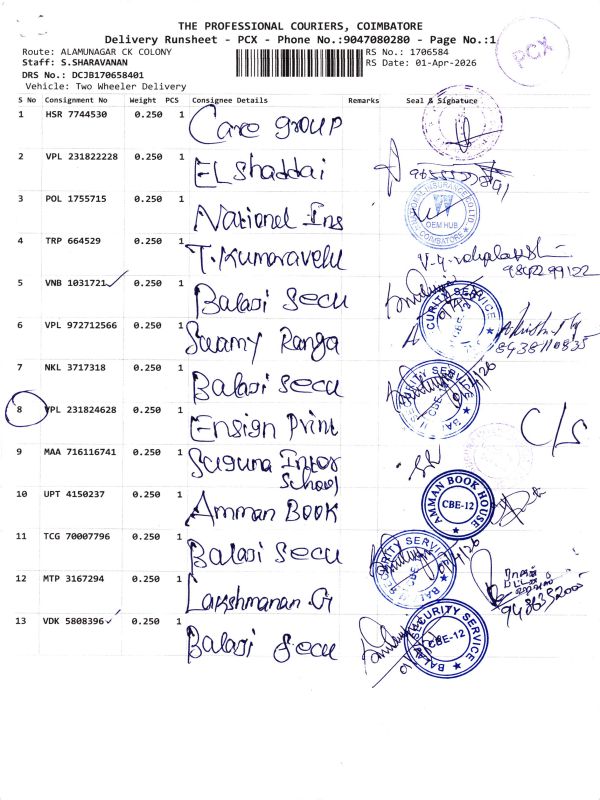 THE PROFESSIONAL COURIERS, COIMBATORE
Delivery Runsheet - PCX - Phone No.:9047080280 - Page No.:1
Route: ALAMUNAGAR CK COLONY
RS No.: 1706584
Staff: S.SHARAVANAN
RS Date: 01-Apr-2026
DRS No.: DCJB170658401
Vehicle: Two Wheeler Delivery
PCX
S No Consignment No Weight PCS Consignee Details Remarks Seal & Signature
1 HSR 7744530 0.250 1 Care Group
2 VPL 231822228 0.250 1 EL Shaddai
3 POL 1755715 0.250 1 National Ins
INSURANCE CO.LTD.
OEM HUB
COIMBATORE
4 TRP 664529 0.250 1 T.Kumaravelu
9842299122
5 VNB 1031721 0.250 1 Balaji Secu
CURITY SERVICE
CBE-12
6 VPL 972712566 0.250 1 Swamy Ranga
8438110835
7 NKL 3717318 0.250 1 Balaji Secu
SECURITY SERVICE
CBE-12
8 VPL 231824628 0.250 1 Ensign Print
C/S
9 MAA 716116741 0.250 1 Suguna Inter School
10 UPT 4150237 0.250 1 Amman Book
AMMAN BOOK HOUSE
CBE-12
11 TCG 70007796 0.250 1 Balaji Secu
CURITY SERVICE
CBE
12 MTP 3167294 0.250 1 Lakshmanan.G
13 VDK 5808396 0.250 1 Balaji Secu
BALAJI SECURITY SERVICE
CBE-12